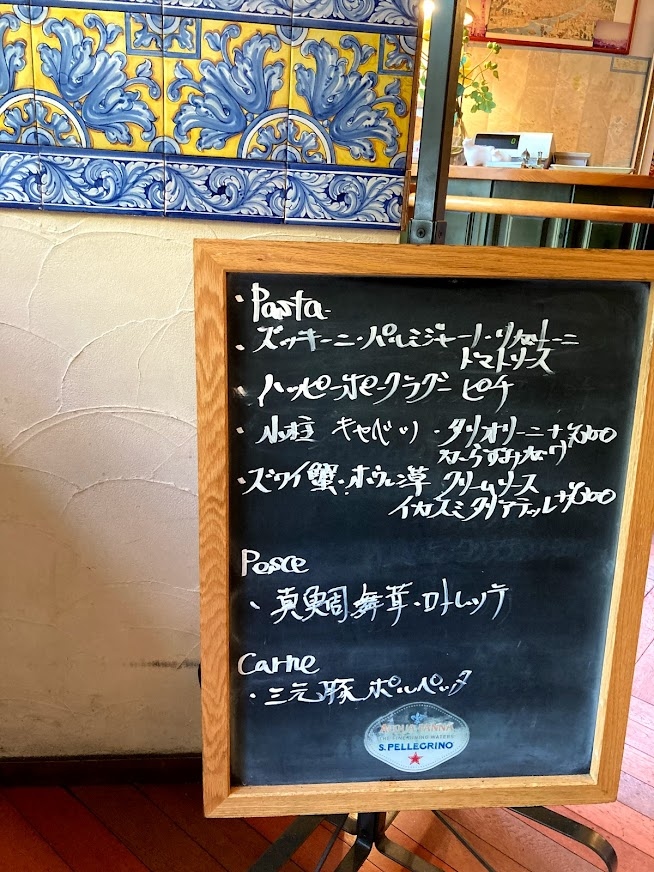 ・Pasta
・ズッキーニ・パルミジャーノ・リガトーニ
トマトソース
・ハッピーポークラグー ピチ
・小柱 キャベツ・タリオリーニ +¥300
からすみ
・ズワイ蟹・ホウレン草 クリームソース
イカスミタリアテッレ +¥300
Pesce
・真鯛 舞茸・ロトレッテ
Carne
・三元豚 ポルペッタ
ACQUA PANNA
S.PELLEGRINO